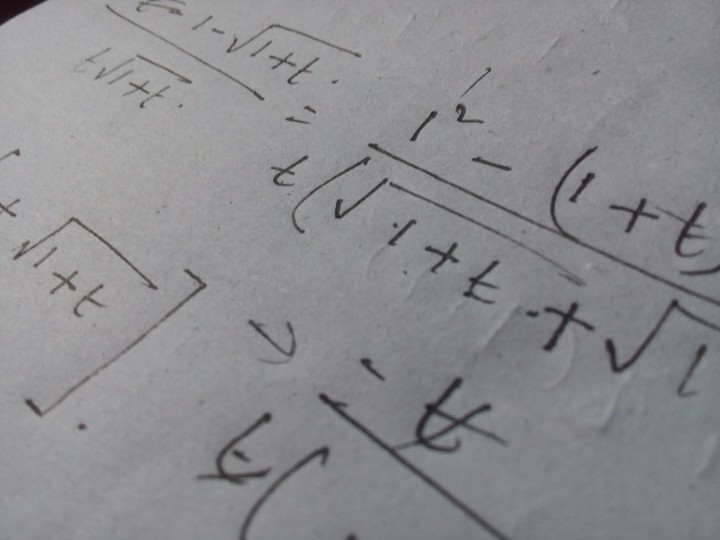 1 - √1+t.
t√1+t.
=
1² - (1 + t)
t (√1 + t + √1
+ √1+t ] .
- t
t (